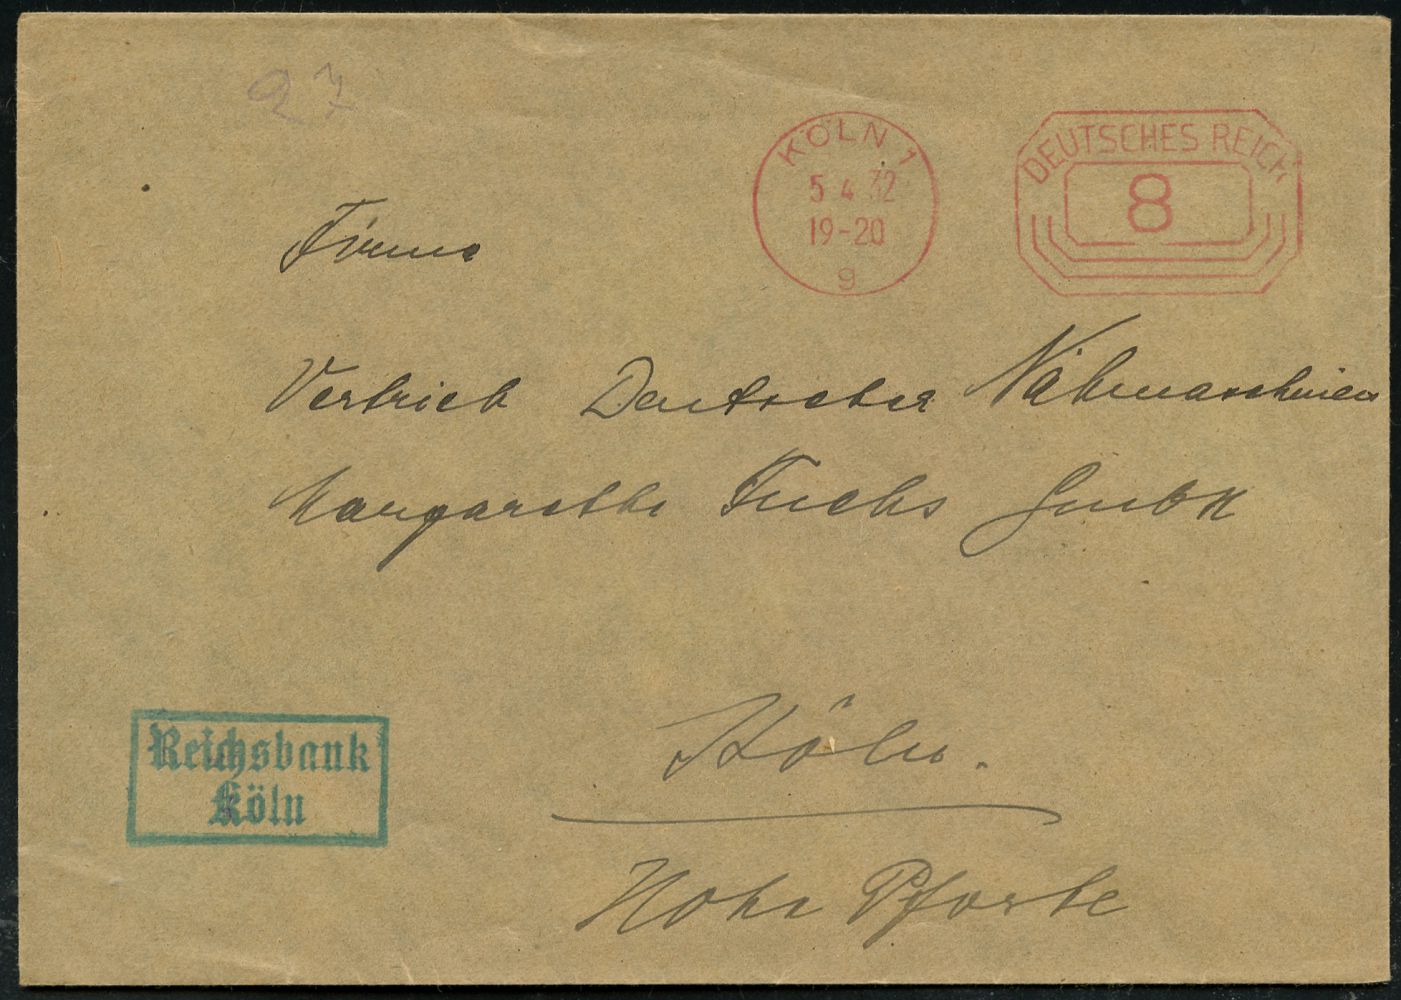 KÖLN 1
5 4 32
19-20
g
DEUTSCHES REICH
8
Firma
Vertrieb Deutscher Nähmaschinen
Margarethe Fuchs GmbH
Köln.
Hohe Pforte
Reichsbank
Köln